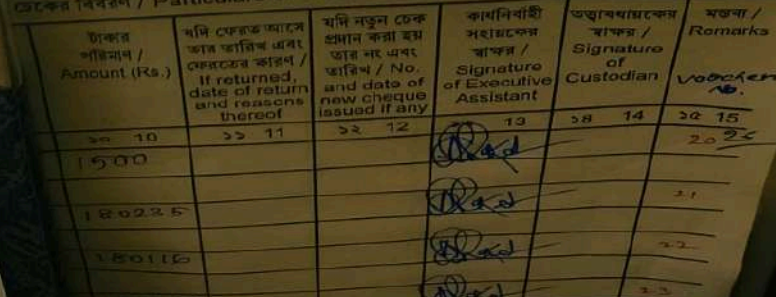 চেকের বিবরণ / Particulars
টাকার
পরিমাণ /
Amount (Rs.)
যদি ফেরত আসে
তার তারিখ এবং
ফেরতের কারণ /
If returned,
date of return
and reasons
thereof
যদি নতুন চেক
প্রদান করা হয়
তার নং এবং
তারিখ / No.
and date of
new cheque
issued if any
কার্যনির্বাহী
সহায়কের
স্বাক্ষর /
Signature
of Executive
Assistant
তত্ত্বাবধায়কের
স্বাক্ষর /
Signature
of
Custodian
মন্তব্য /
Remarks
Voucher
No.
১০ 10
১১ 11
১২ 12
13
১৪ 14
১৫ 15
1500
20
180235
21
180116
22
23